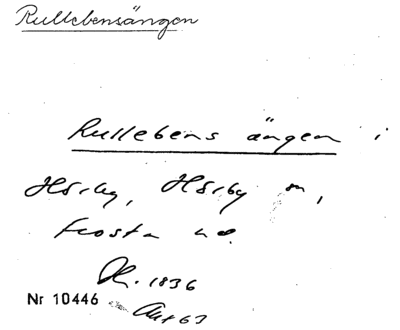 Rullebensängen
Rullebens ängen i
Hörby, Hörby sn,
Frosta hd.
1836
Nr 10446
Akt 63